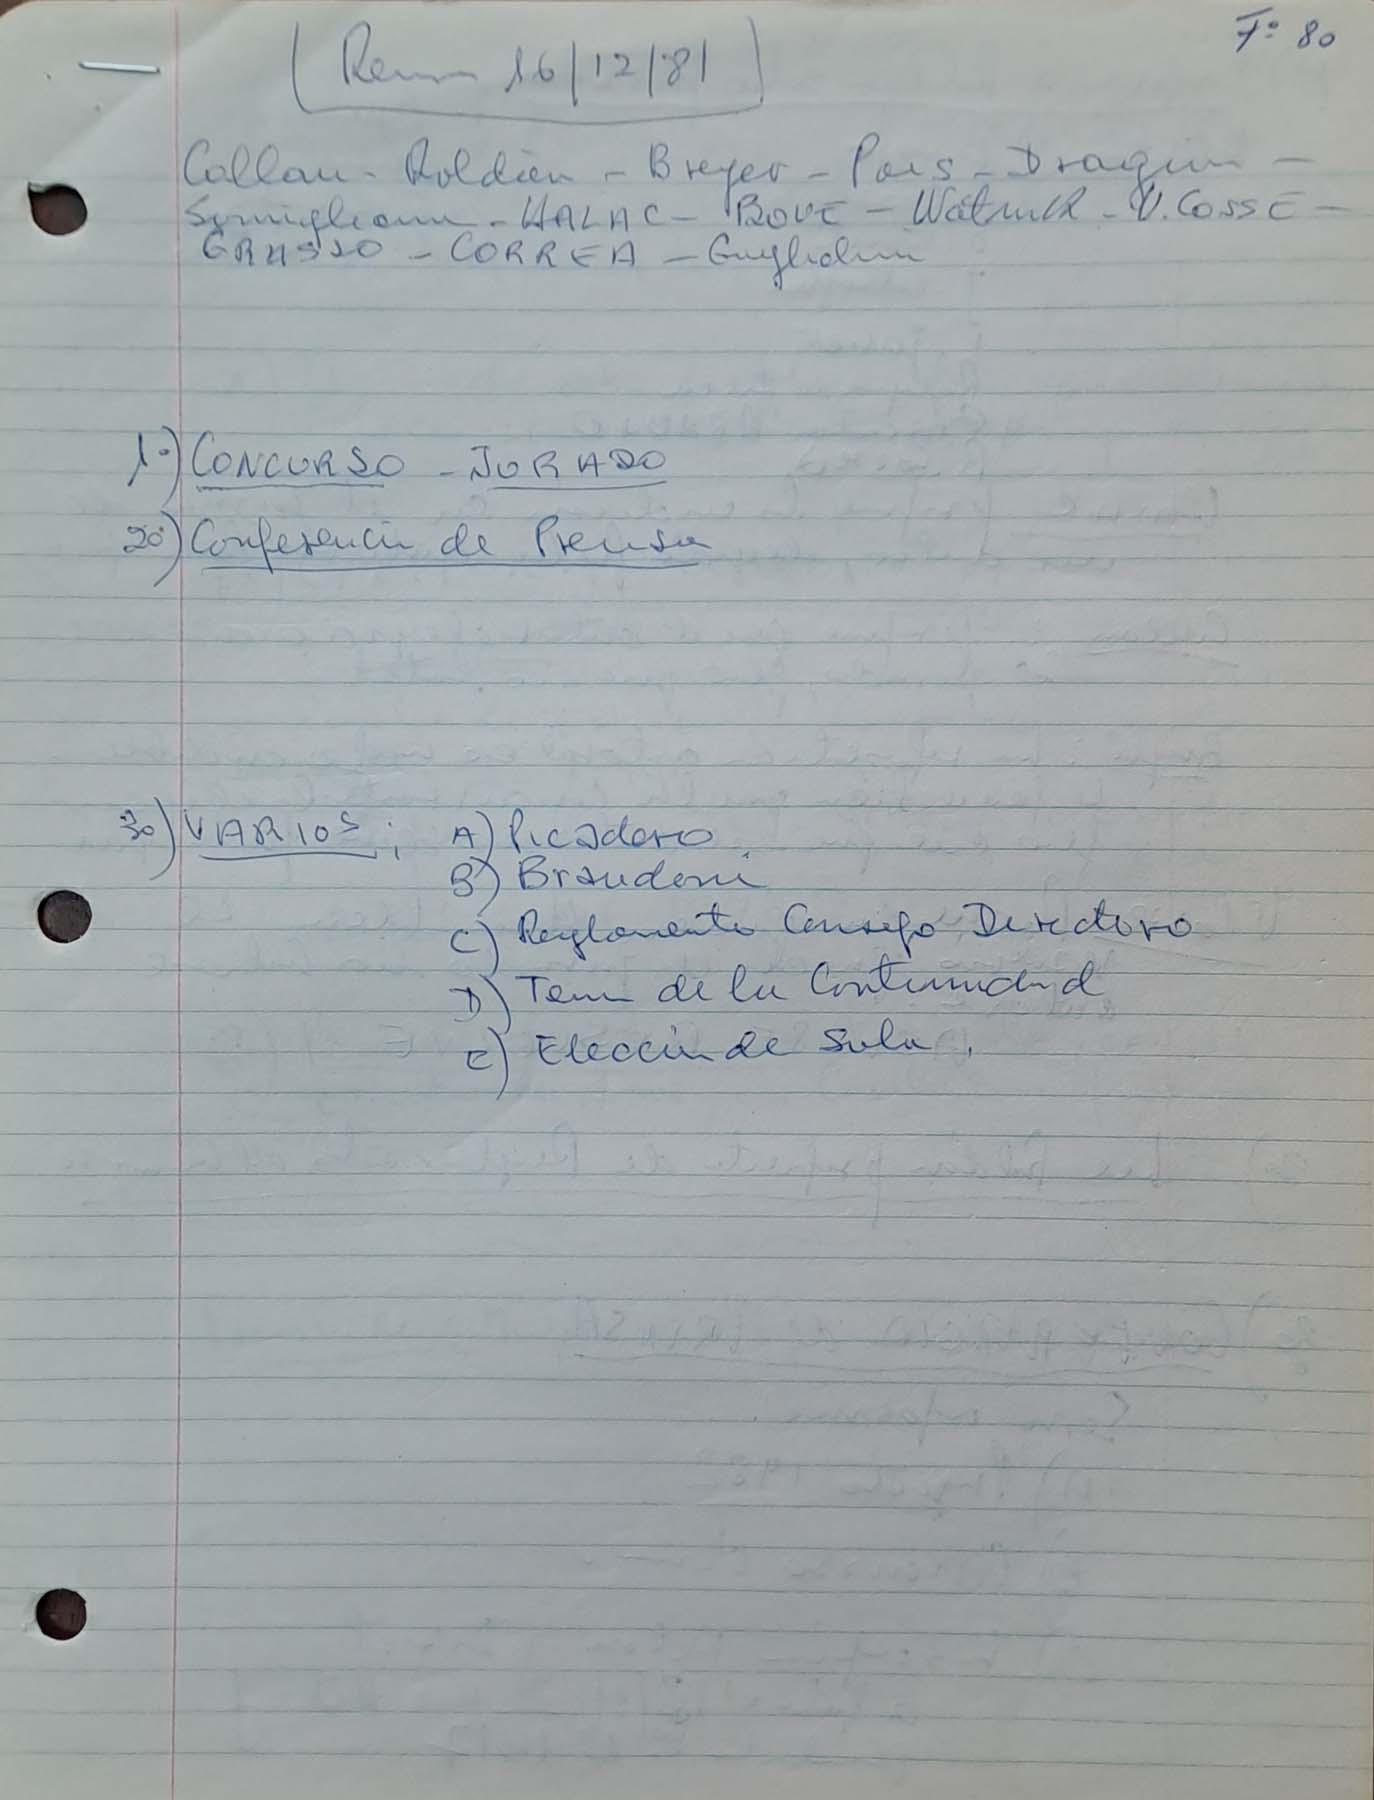 Fº 80
Reun 16/12/81
Collau - Roldán - Breyer - Pais - Dragún -
Somigliana - HALAC - BOVE - Watnik - V. COSSE -
GRASSO - CORREA - Guglielmi
1º) CONCURSO - JURADO
2º) Conferencia de Prensa
3º) VARIOS: A) Picadero
B) Brandoni
C) Reglamento Consejo Directivo
D) Tema de la Continuidad
E) Elección de Sala.